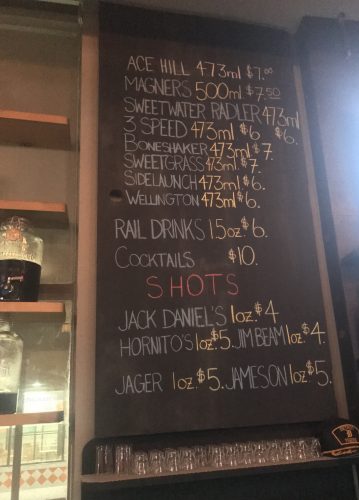 ACE HILL 473ml $7.00
MAGNERS 500ml $7.50
SWEETWATER RADLER 473ml
3 SPEED 473ml $6 $6.
BONESHAKER 473ml $7.
SWEETGRASS 473ml $7.
SIDELAUNCH 473ml $6.
WELLINGTON 473ml $6.
RAIL DRINKS 1.5oz $6.
COCKTAILS $10.
SHOTS
JACK DANIEL'S 1oz. $4
HORNITO'S 1oz $5. JIM BEAM 1oz $4.
JAGER 1oz. $5. JAMESON 1oz $5.